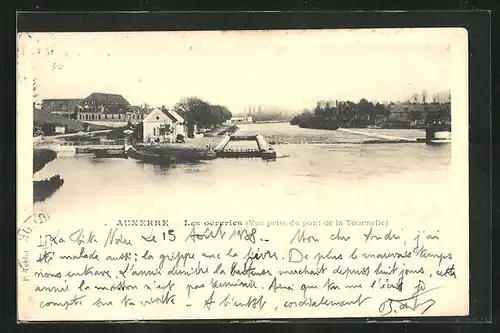 AUXERRE – Les ocreries (Vue prise du pont de la Tournelle)
La Côte Noire le 15 Août 1908 – Mon cher André, j'ai
été malade aussi; la grippe avec la fièvre. De plus le mauvais temps
nous entrave. L'année dernière la batteuse marchait depuis huit jours, cette
année la moisson n'est pas terminée. Ainsi que tu me l'écris je
compte sur ta visite – A bientôt, cordialement